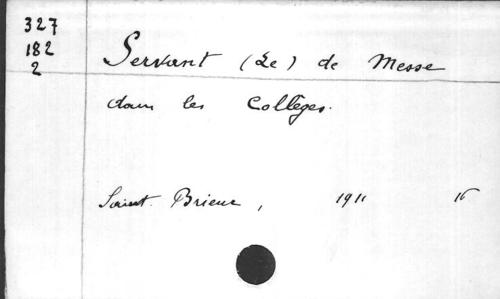 327
182
2
Servant (Le) de Messe
dans les Collèges.
Saint. Brieuc, 1911 16